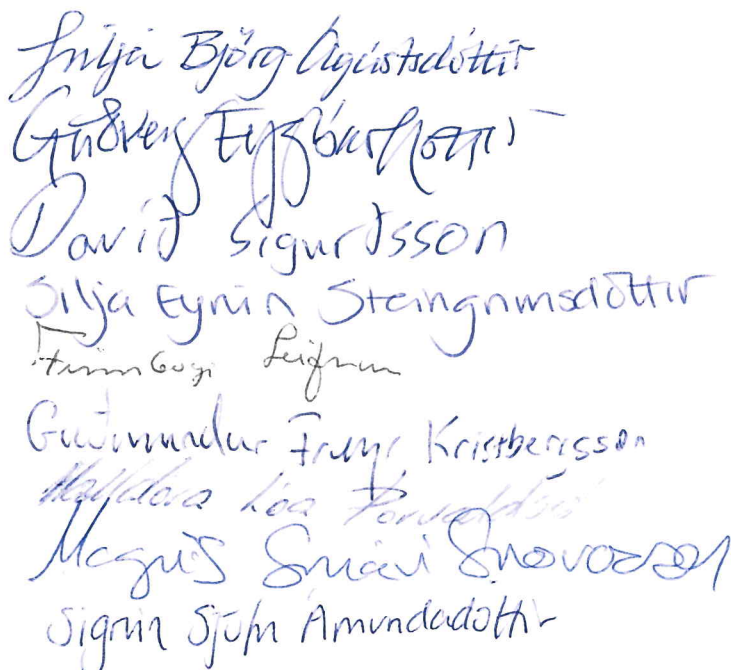 Lilja Björg Ágústsdóttir
Guðveig Eyglóardóttir
Davíð Sigurðsson
Silja Eyrún Steingrímsdóttir
Finnbogi Leifsson
Guðmundur Freyr Kristbergsson
Halldóra Lóa Þorvaldsdóttir
Magnús Smári Snorrason
Sigrún Sjöfn Ámundadóttir